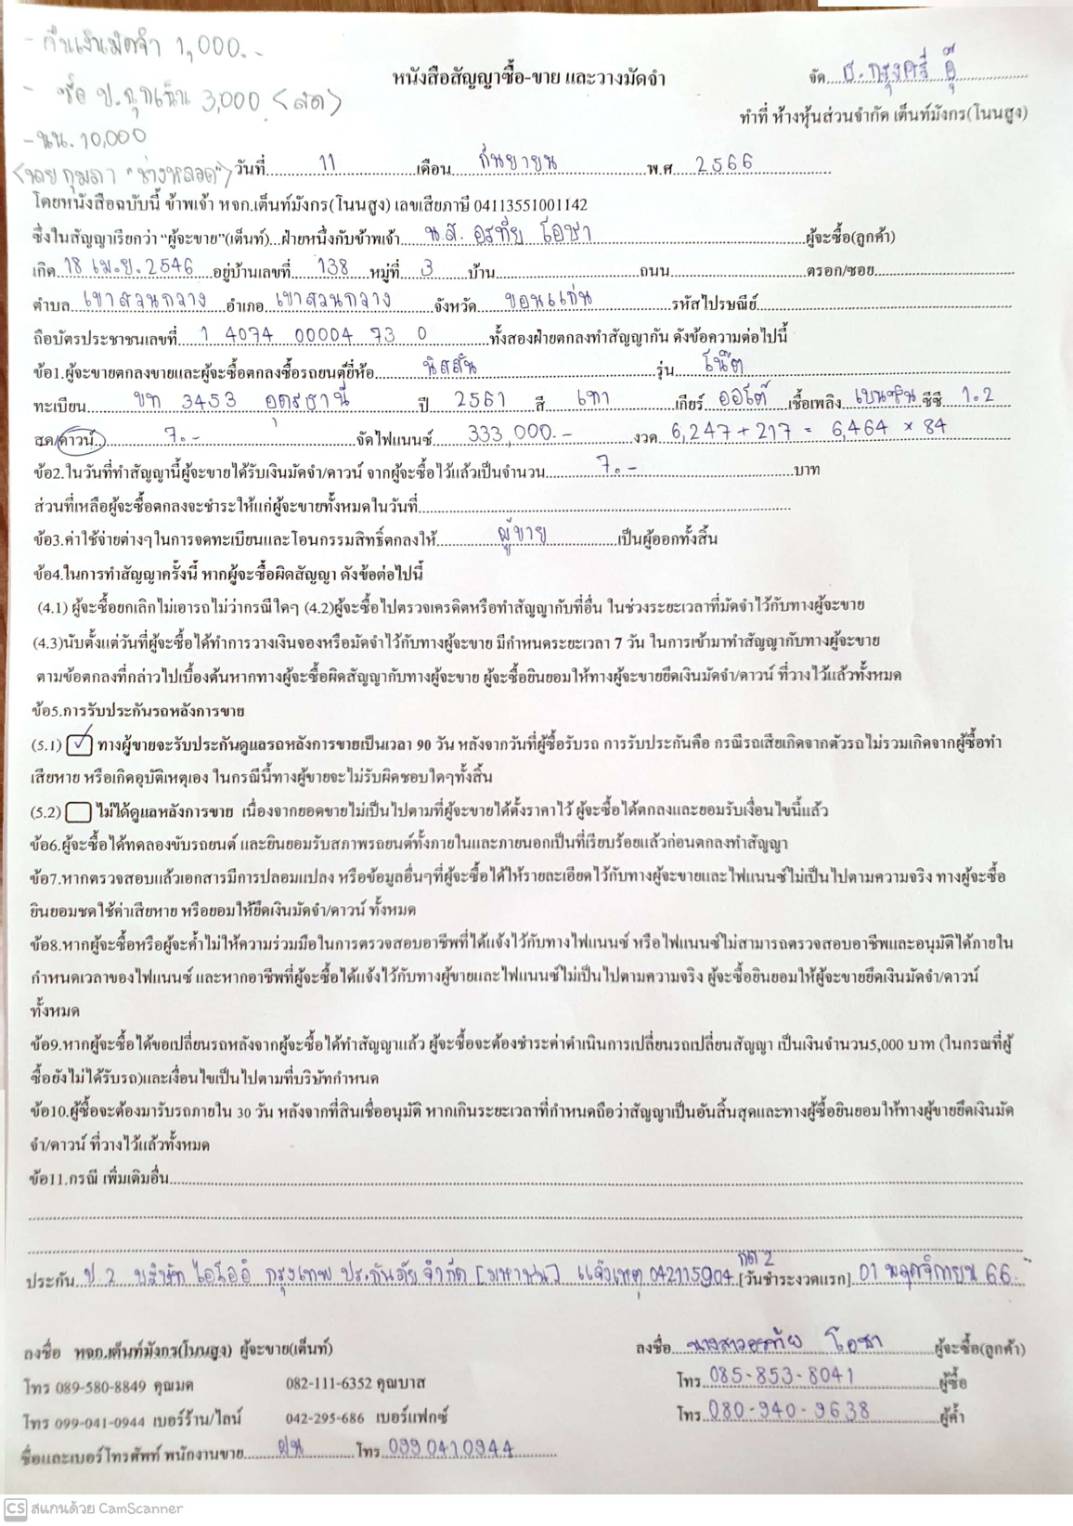 - คืนเงินมัดจำ 1,000.-
หนังสือสัญญาซื้อ-ขาย และวางมัดจำ
จัด ธ.กรุงศรี อุ๊
- ซื้อ ป.ถูกเงิน 3,000 <สด>
ทำที่ ห้างหุ้นส่วนจำกัด เต็นท์มังกร(โนนสูง)
- นน. 10,000
<จอย กุมภา "ช่างหลอด">
วันที่ 11 เดือน กันยายน พ.ศ. 2566
โดยหนังสือฉบับนี้ ข้าพเจ้า หจก.เต็นท์มังกร(โนนสูง) เลขเสียภาษี 04113551001142
ซึ่งในสัญญาเรียกว่า "ผู้จะขาย"(เต็นท์)...ฝ่ายหนึ่งกับข้าพเจ้า น.ส. อรทัย โอษา ผู้จะซื้อ(ลูกค้า)
เกิด 18 เม.ย. 2546 อยู่บ้านเลขที่ 138 หมู่ที่ 3 บ้าน ถนน ตรอก/ซอย
ตำบล เขาสวนกวาง อำเภอ เขาสวนกวาง จังหวัด ขอนแก่น รหัสไปรษณีย์
ถือบัตรประชาชนเลขที่ 1 4074 00004 73 0 ทั้งสองฝ่ายตกลงทำสัญญากัน ดังข้อความต่อไปนี้
ข้อ1.ผู้จะขายตกลงขายและผู้จะซื้อตกลงซื้อรถยนต์ยี่ห้อ นิสสัน รุ่น โน๊ต
ทะเบียน ขท 3453 อุดรธานี ปี 2561 สี เทา เกียร์ ออโต้ เชื้อเพลิง เบนซิน ซีซี 1.2
สด/ดาวน์ 7.- จัดไฟแนนซ์ 333,000.- งวด 6,247+217 = 6,464 × 84
ข้อ2.ในวันที่ทำสัญญานี้ผู้จะขายได้รับเงินมัดจำ/ดาวน์ จากผู้จะซื้อไว้แล้วเป็นจำนวน 7.- บาท
ส่วนที่เหลือผู้จะซื้อตกลงจะชำระให้แก่ผู้จะขายทั้งหมดในวันที่
ข้อ3.ค่าใช้จ่ายต่างๆในการจดทะเบียนและโอนกรรมสิทธิ์ตกลงให้ ผู้ขาย เป็นผู้ออกทั้งสิ้น
ข้อ4.ในการทำสัญญาครั้งนี้ หากผู้จะซื้อผิดสัญญา ดังข้อต่อไปนี้
(4.1) ผู้จะซื้อยกเลิกไม่เอารถไม่ว่ากรณีใดๆ (4.2)ผู้จะซื้อไปตรวจเครดิตหรือทำสัญญากับที่อื่น ในช่วงระยะเวลาที่มัดจำไว้กับทางผู้จะขาย
(4.3)นับตั้งแต่วันที่ผู้จะซื้อได้ทำการวางเงินจองหรือมัดจำไว้กับทางผู้จะขาย มีกำหนดระยะเวลา 7 วัน ในการเข้ามาทำสัญญากับทางผู้จะขาย
ตามข้อตกลงที่กล่าวไปเบื้องต้นหากทางผู้จะซื้อผิดสัญญากับทางผู้จะขาย ผู้จะซื้อยินยอมให้ทางผู้จะขายยึดเงินมัดจำ/ดาวน์ ที่วางไว้แล้วทั้งหมด
ข้อ5.การรับประกันรถหลังการขาย
(5.1) ✓ ทางผู้ขายจะรับประกันดูแลรถหลังการขายเป็นเวลา 90 วัน หลังจากวันที่ผู้ซื้อรับรถ การรับประกันคือ กรณีรถเสียเกิดจากตัวรถไม่รวมเกิดจากผู้ซื้อทำ
เสียหาย หรือเกิดอุบัติเหตุเอง ในกรณีนี้ทางผู้ขายจะไม่รับผิดชอบใดๆทั้งสิ้น
(5.2) ไม่ได้ดูแลหลังการขาย เนื่องจากยอดขายไม่เป็นไปตามที่ผู้จะขายได้ตั้งราคาไว้ ผู้จะซื้อได้ตกลงและยอมรับเงื่อนไขนี้แล้ว
ข้อ6.ผู้จะซื้อได้ทดลองขับรถยนต์ และยินยอมรับสภาพรถยนต์ทั้งภายในและภายนอกเป็นที่เรียบร้อยแล้วก่อนตกลงทำสัญญา
ข้อ7.หากตรวจสอบแล้วเอกสารมีการปลอมแปลง หรือข้อมูลอื่นๆที่ผู้จะซื้อได้ให้รายละเอียดไว้กับทางผู้จะขายและไฟแนนซ์ไม่เป็นไปตามความจริง ทางผู้จะซื้อ
ยินยอมชดใช้ค่าเสียหาย หรือยอมให้ยึดเงินมัดจำ/ดาวน์ ทั้งหมด
ข้อ8.หากผู้จะซื้อหรือผู้จะค้ำไม่ให้ความร่วมมือในการตรวจสอบอาชีพที่ได้แจ้งไว้กับทางไฟแนนซ์ หรือไฟแนนซ์ไม่สามารถตรวจสอบอาชีพและอนุมัติได้ภายใน
กำหนดเวลาของไฟแนนซ์ และหากอาชีพที่ผู้จะซื้อได้แจ้งไว้กับทางผู้ขายและไฟแนนซ์ไม่เป็นไปตามความจริง ผู้จะซื้อยินยอมให้ผู้จะขายยึดเงินมัดจำ/ดาวน์
ทั้งหมด
ข้อ9.หากผู้จะซื้อได้ขอเปลี่ยนรถหลังจากผู้จะซื้อได้ทำสัญญาแล้ว ผู้จะซื้อจะต้องชำระค่าดำเนินการเปลี่ยนรถเปลี่ยนสัญญา เป็นเงินจำนวน5,000 บาท (ในกรณที่ผู้
ซื้อยังไม่ได้รับรถ)และเงื่อนไขเป็นไปตามที่บริษัทกำหนด
ข้อ10.ผู้ซื้อจะต้องมารับรถภายใน 30 วัน หลังจากที่สินเชื่ออนุมัติ หากเกินระยะเวลาที่กำหนดถือว่าสัญญาเป็นอันสิ้นสุดและทางผู้ซื้อยินยอมให้ทางผู้ขายยึดเงินมัด
จำ/ดาวน์ ที่วางไว้แล้วทั้งหมด
ข้อ11.กรณี เพิ่มเติมอื่น
กด 2
ประกัน ป 2 บริษัท ไอโออิ กรุงเทพ ประกันภัย จำกัด [มหาชน] แจ้งเหตุ 042115904 [วันชำระงวดแรก] 01 พฤศจิกายน 66
ลงชื่อ หจก.เต็นท์มังกร(โนนสูง) ผู้จะขาย(เต็นท์) ลงชื่อ นางสาวอรทัย โอษา ผู้จะซื้อ(ลูกค้า)
โทร 089-580-8849 คุณมด 082-111-6352 คุณบาส โทร 085-853-8041 ผู้ซื้อ
โทร 099-041-0944 เบอร์ร้าน/ไลน์ 042-295-686 เบอร์แฟกซ์ โทร 080-940-9638 ผู้ค้ำ
ชื่อและเบอร์โทรศัพท์ พนักงานขาย ฝน โทร 0990410944
CS สแกนด้วย CamScanner